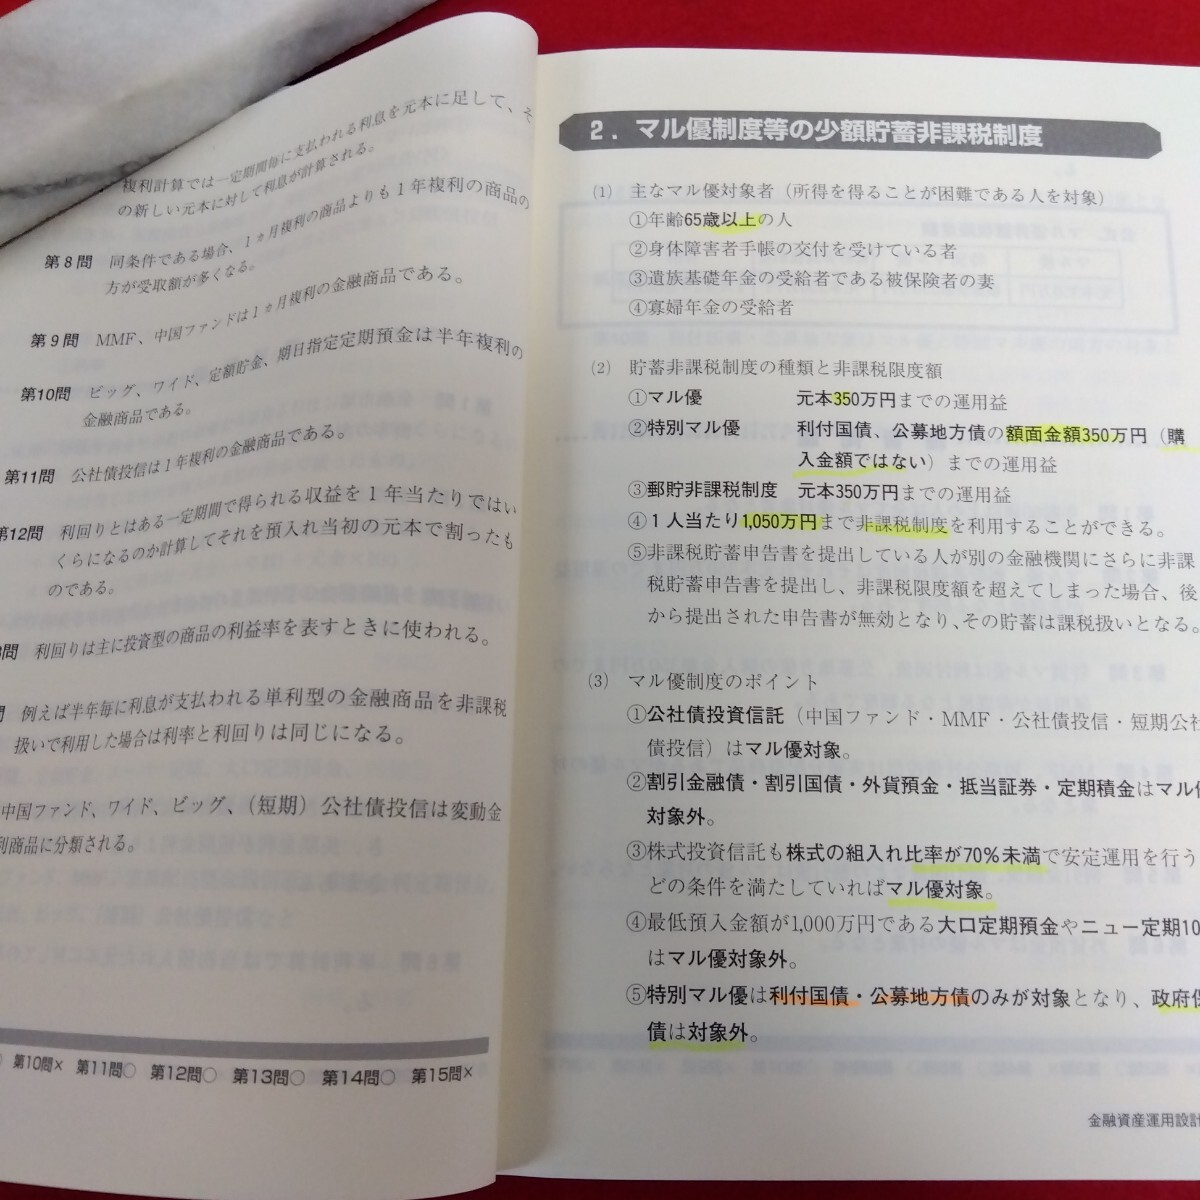 複利計算では一定期間毎に支払われる利息を元本に足して、そ
の新しい元本に対して利息が計算される。
第8問 同条件である場合、1ヵ月複利の商品よりも1年複利の商品の
方が受取額が多くなる。
第9問 MMF、中国ファンドは1ヵ月複利の金融商品である。
第10問 ビッグ、ワイド、定額貯金、期日指定定期預金は半年複利の
金融商品である。
第11問 公社債投信は1年複利の金融商品である。
第12問 利回りとはある一定期間で得られる収益を1年当たりではい
くらになるのか計算してそれを預入れ当初の元本で割ったも
のである。
問 利回りは主に投資型の商品の利益率を表すときに使われる。
問 例えば半年毎に利息が支払われる単利型の金融商品を非課税
扱いで利用した場合は利率と利回りは同じになる。
中国ファンド、ワイド、ビッグ、(短期)公社債投信は変動金
利商品に分類される。
第10問× 第11問○ 第12問○ 第13問○ 第14問○ 第15問×
2．マル優制度等の少額貯蓄非課税制度
(1) 主なマル優対象者(所得を得ることが困難である人を対象)
①年齢65歳以上の人
②身体障害者手帳の交付を受けている者
③遺族基礎年金の受給者である被保険者の妻
④寡婦年金の受給者
(2) 貯蓄非課税制度の種類と非課税限度額
①マル優 元本350万円までの運用益
②特別マル優 利付国債、公募地方債の額面金額350万円(購
入金額ではない)までの運用益
③郵貯非課税制度 元本350万円までの運用益
④1人当たり1,050万円まで非課税制度を利用することができる。
⑤非課税貯蓄申告書を提出している人が別の金融機関にさらに非課
税貯蓄申告書を提出し、非課税限度額を超えてしまった場合、後
から提出された申告書が無効となり、その貯蓄は課税扱いとなる。
(3) マル優制度のポイント
①公社債投資信託(中国ファンド・MMF・公社債投信・短期公社
債投信)はマル優対象。
②割引金融債・割引国債・外貨預金・抵当証券・定期積金はマル優
対象外。
③株式投資信託も株式の組入れ比率が70%未満で安定運用を行う
どの条件を満たしていればマル優対象。
④最低預入金額が1,000万円である大口定期預金やニュー定期10
はマル優対象外。
⑤特別マル優は利付国債・公募地方債のみが対象となり、政府保
債は対象外。
金融資産運用設計